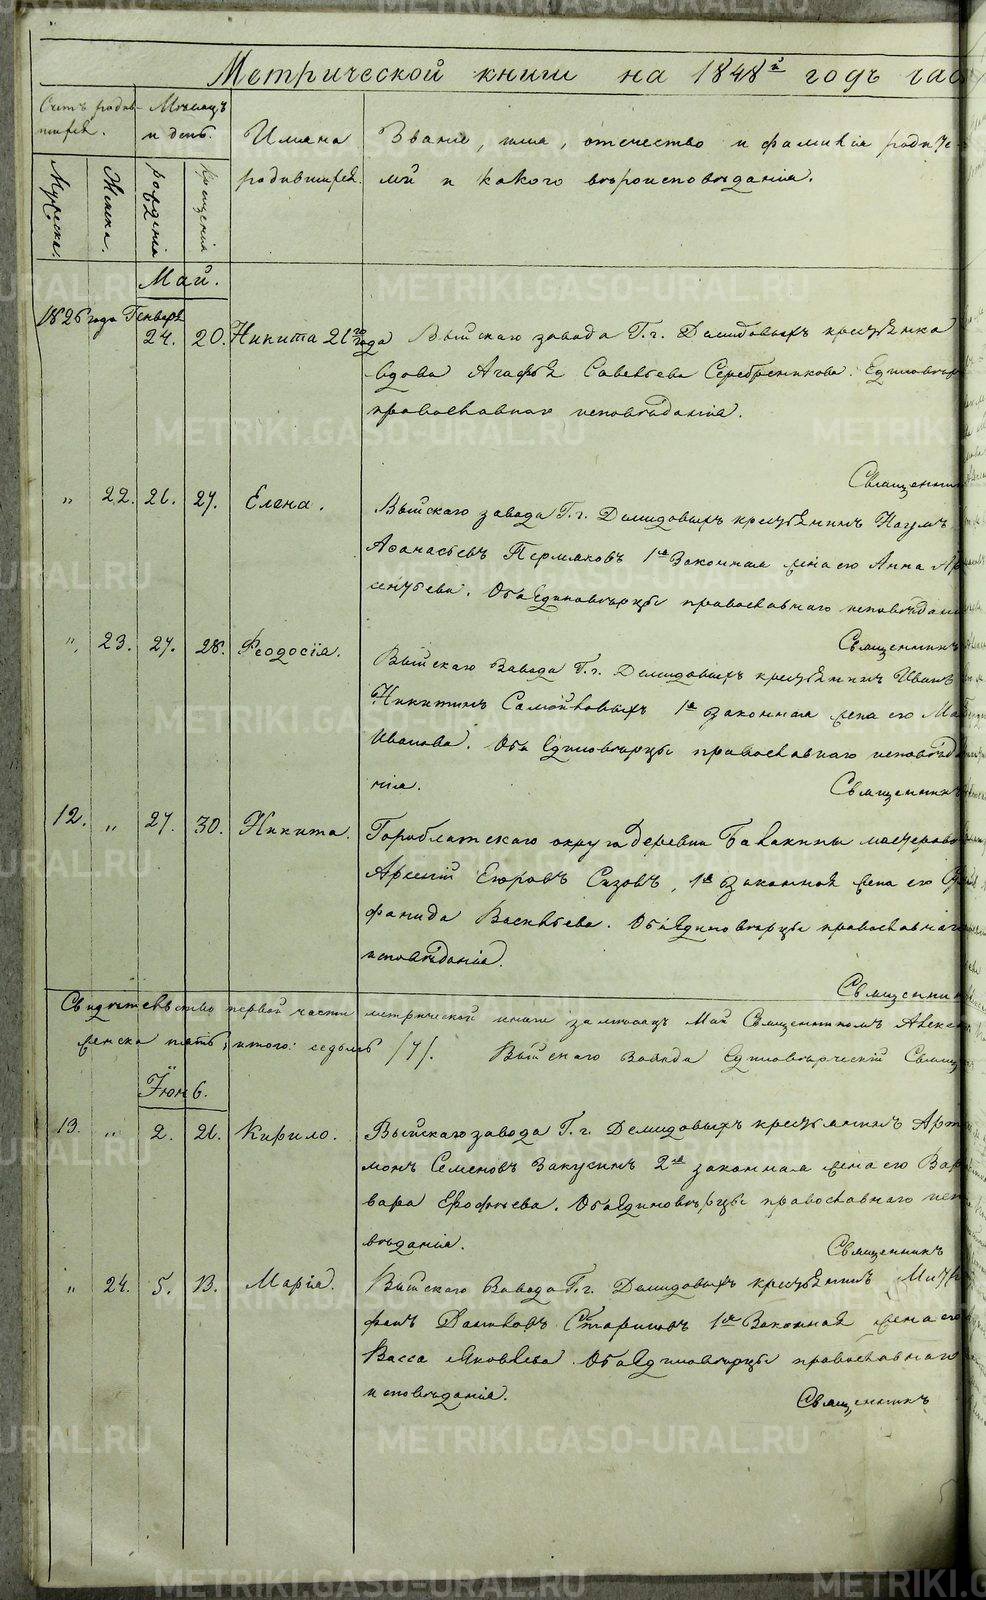 Метрической книги на 1848й годъ час
Счетъ родив-
шихся.
Мѣсяцъ
и день.
Имяна
родившихся.
Званіе, имя, отечество и фамилія родите-
лей и какого вѣроисповѣданія.
Мужеска.
Женска.
рожденія
крещенія
Май.
1826 года Генваря
24. 20. Никита 21го года
Выйскаго завода Г.г. Демидовыхъ крестьянка
вдова Агафья Савельева Серебреникова. Единовѣр
православнаго исповѣданія.
Священник
" 22. 26. 27. Елена.
Выйскаго завода Г.г. Демидовыхъ крестьянинъ Наумъ
Афанасьевъ Пермяковъ 1я Законная жена его Анна Ар
сентьева. Оба Единовѣрцы православнаго исповѣдані
Священникъ
" 23. 27. 28. Феодосія.
Выйскаго Завода Г.г. Демидовыхъ крестьянинъ Иванъ
Никитинъ Самойловыхъ 1я законная жена его Ма
Иванова. Оба Единовѣрцы православнаго исповѣда
нія.
Священник
12. " 27. 30. Никита.
Гороблатскаго округа деревни Балакины мастерово
Арсений Егоровъ Сизовъ, 1я законная жена его
фанида Васильева. Оба Единовѣрцы православнаг
исповѣданія.
Священник
Свидѣтельство первой части метрической книги за мѣсяцъ Май Священникомъ Алекс
женска пять, итого: седьмь /7/. Выйскаго Завода Единовѣрческій Свящ
Іюнь.
13. " 2. 21. Кирило.
Выйскаго завода Г.г. Демидовыхъ крестьянинъ Арт
монъ Семеновъ Закусинъ 2я законная жена его Вар
вара Ерофѣева. Оба Единовѣрцы православнаго исп
вѣданія.
Священникъ
" 24. 5. 13. Марія.
Выйскаго Завода Г.г. Демидовыхъ крестьянинъ Митр
фанъ Даниловъ Старицовъ 1я Законная жена его
Васса Яковлева. Оба Единовѣрцы православнаг
исповѣданія.
Священникъ
METRIKI.GASO-URAL.RU